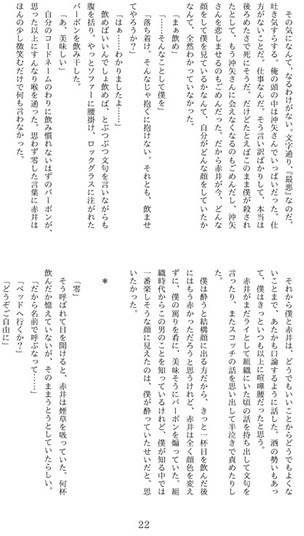 その気になんて、なるわけがない。文字通り、『最悪』なのだ。
吐き気すらする。俺の頭の中は沖矢さんでいっぱいだった。仕
方がないことだ。仕事なんだ。そう言い訳ばかりして、本当は
後ろめたさで死にそうだ。だけどたとえばこのまま僕が殺され
たとして、もう沖矢さんに会えなくなるのもごめんだし、沖矢
さんを悲しませるのもごめんだった。だから赤井が今、どんな
顔をして僕を見ているかなんて、自分がどんな顔をしていたか
なんて、全然わかっていなかった。
「まぁ飲め」
「……そんなことして僕を」
「落ち着け。そんなじゃ抱くに抱けない。それとも、飲ませ
てやろうか？」
「はぁ……わかりましたよ……」
飲めばいいんでしょ飲めば、とぶつぶつ文句を言いながらも
腹を括り、やっとソファーに腰掛け、ロックグラスに注がれた
バーボンを飲み干した。
「あ、美味しい」
自分のコードネームのわりに飲み慣れないはずのバーボンが、
思った以上にすんなり喉を通った。思わず零した言葉に赤井は
ほんの少し微笑むだけで何も言わなかった。
それから僕と赤井は、どうでもいいことからどうでもよくな
いことまで、あたかも口論するように話した。酒の勢いもあっ
て、僕はきっといつも以上に喧嘩腰だったと思う。
赤井がまだライとして組織にいた頃の話を持ち出して文句を
言ったり、またスコッチの話を思い出して半泣きで責めたりし
た。
僕は酔うと結構顔に出る方だから、きっと一杯目を飲んだ後
にはもう赤かっただろうと思うけれど、赤井は全く顔色を変え
ずに、僕の罵りを肴に、美味そうにバーボンを煽っていた。組
織時代からこの男のことを知っているけれど、僕が知る中では
一番楽しそうな顔に見えたのは、僕が酔っていたせいだと、思
いたかった。
*
「零」
そう呼ばれて目を開けると、赤井は煙草を吸っていた。何杯
飲んだか憶えていないが、そのままうとうとしていたらしい。
「だから名前で呼ぶなって……」
「ベッドへ行くか？」
「どうぞご自由に」
22